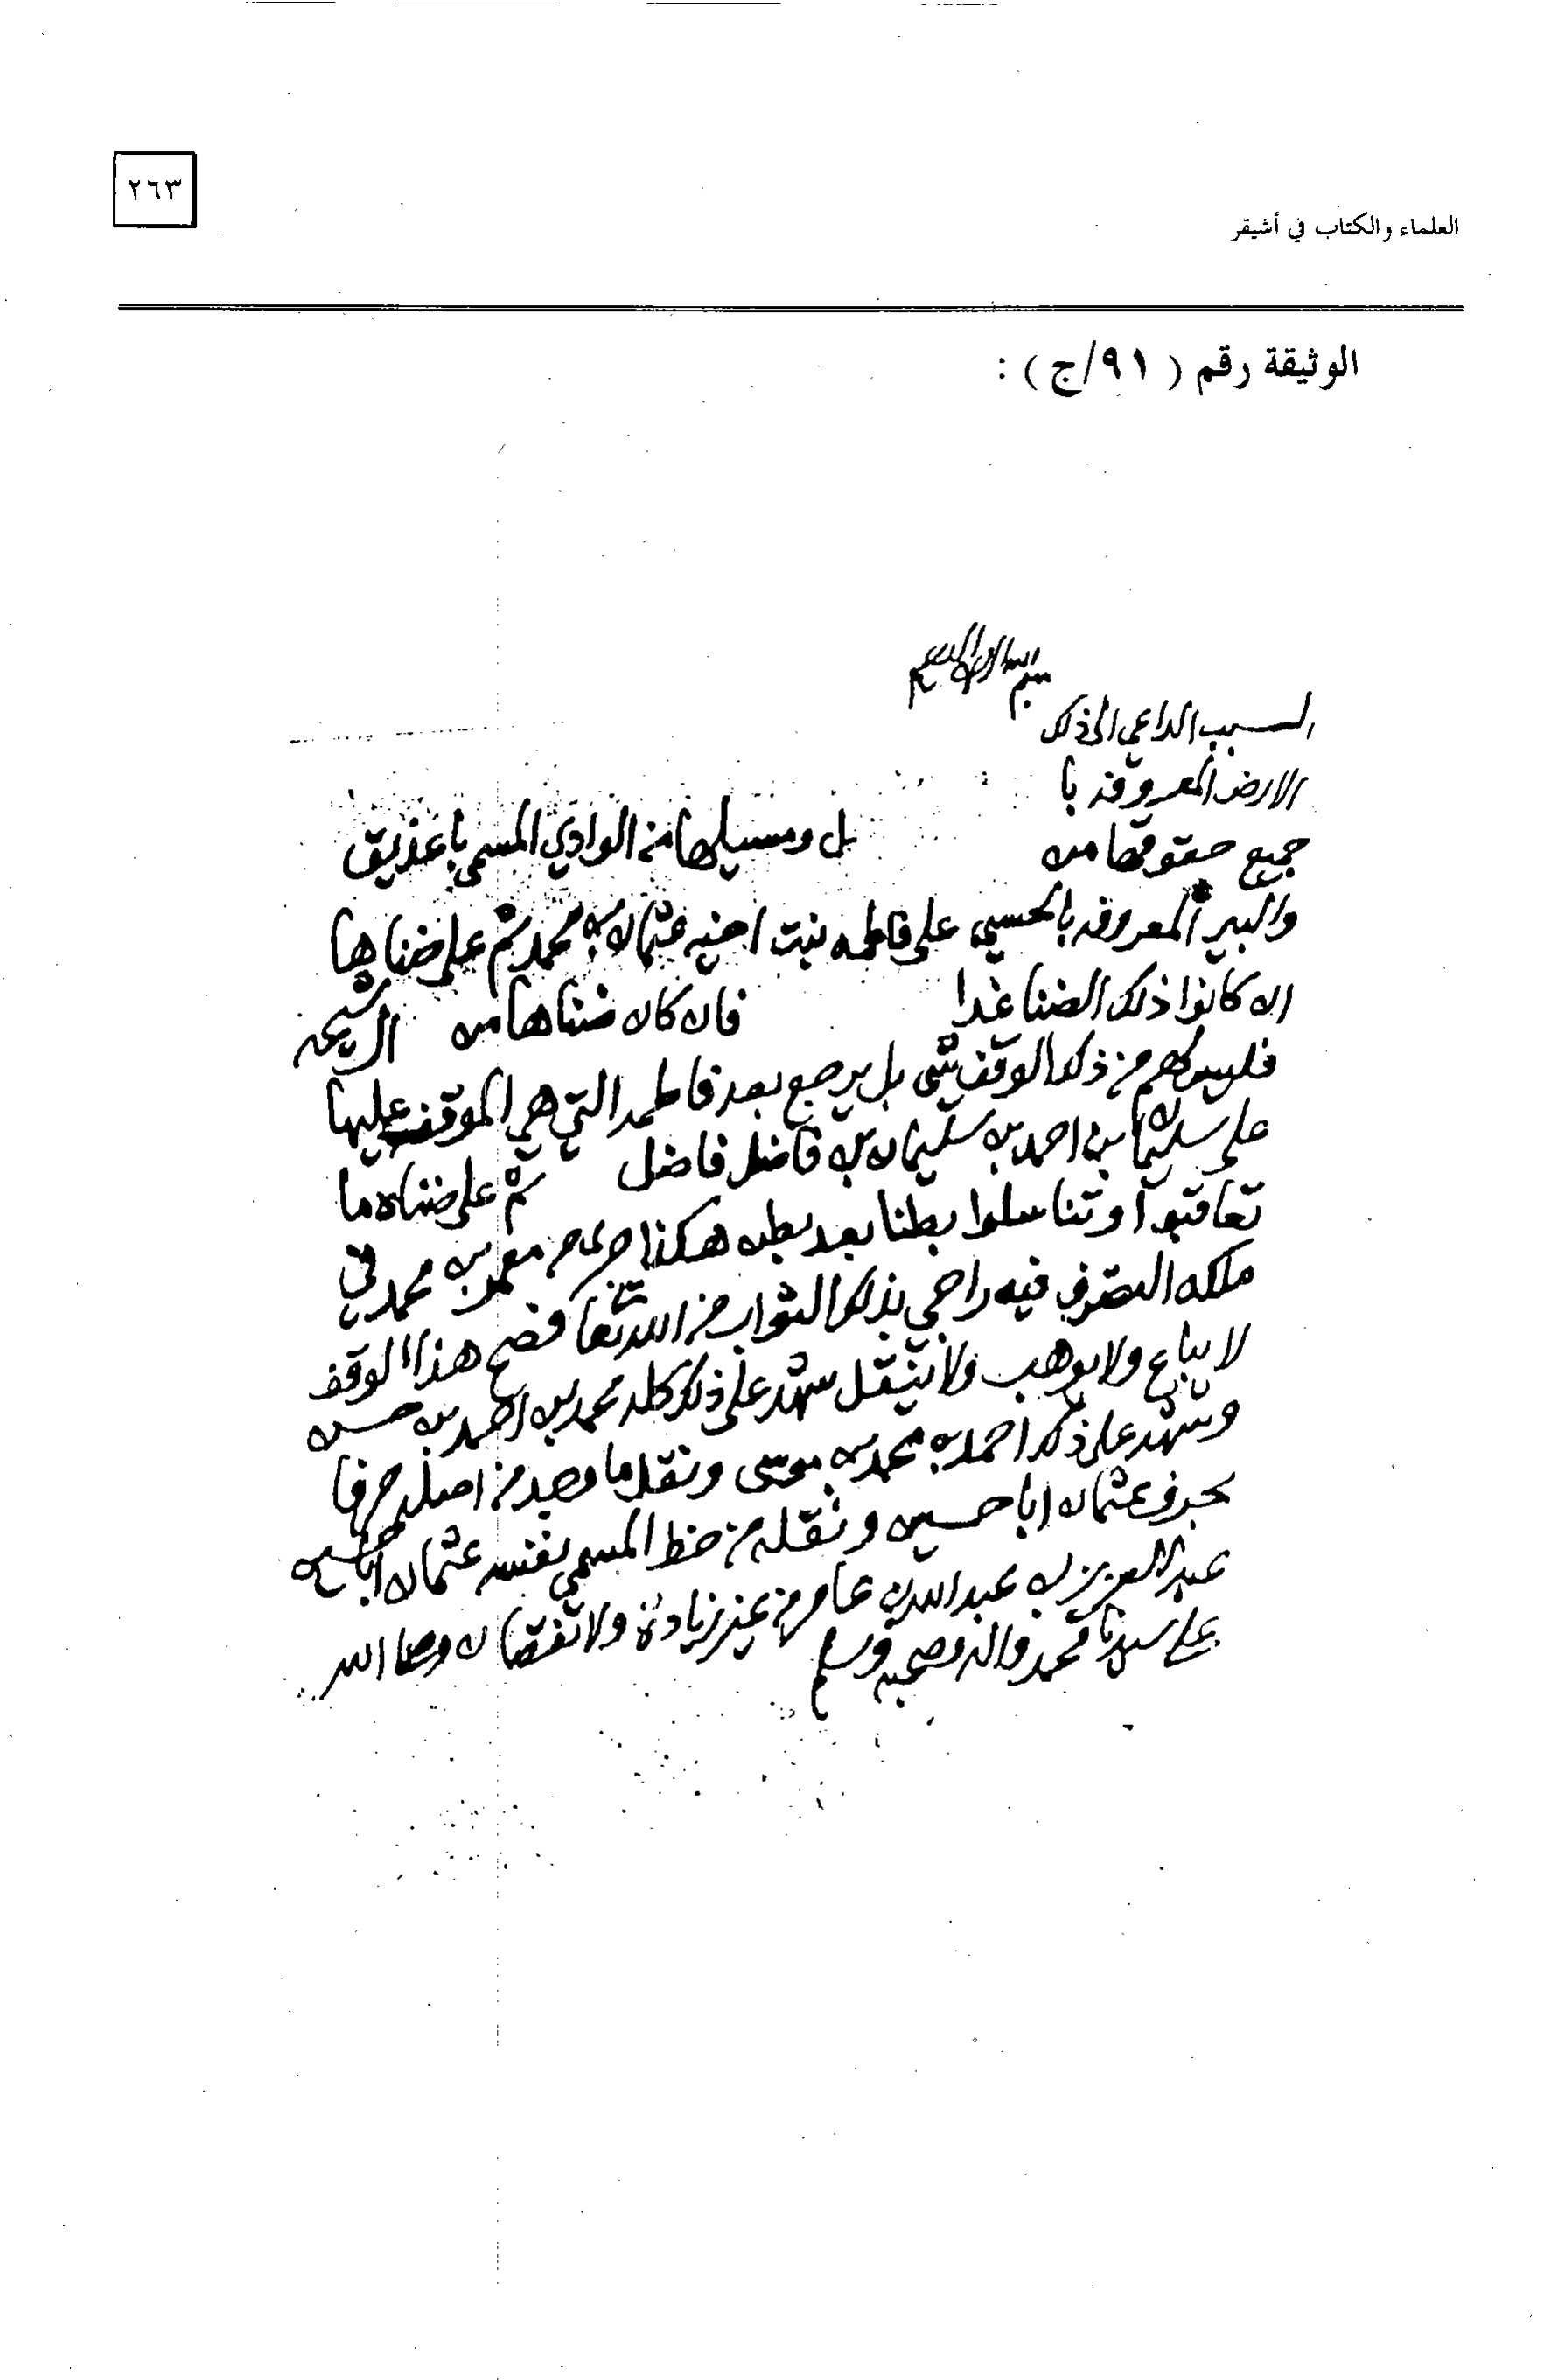 ٢٦٣
العلماء والكتاب في أشيقر
الوثيقة رقم ( ٩١/ج ) :
بسم الله الرحمن الرحيم
السبب الداعي الى ذلك
الارض المعروفه با
جميع حقوقها من بل ومسيلها من الوادي المسمى باعذيق
والبير المعروفه بالحسيني على فاطمه بنت اخيه عثمان بن محمد ثم على ضناها
ان كانوا ذلك الضنا غدا فان كان ضناها من ال شيحه
فليس لهم من ذلك الوقف شي بل يرجع بعد فاطمه التي هي الموقف عليها
على سليمان بن احمد بن سليمان بن فاضل فاضل ثم على ضناه ما
تعاقبوا وتناسلوا بطنا بعد بطن هكذا معمر بن محمد في
ملكه التصرف فيه راجي بذلك الثواب من الله تعا فصح هذا الوقف
لا يباع ولا يوهب ولا ينتقل شهد على ذلك كله محمد بن احمد بن حسن
وشهد على ذلك احمد بن محمد بن موسى ونقل ما وجد من اصله حرفا
بحرف عثمان ابا حسين ونقله من خط المسمى نفسه عثمان ابا حسين
عبد العزيز بن عبد الله بن عامر من غير زيادة ولا نقصان وصلى الله
على سيدنا محمد واله وصحبه وسلم